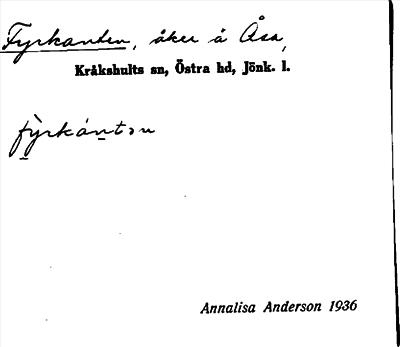 Fyrkanten, åker å Åsa,
Kråkshults sn, Östra hd, Jönk. l.
fỳrkántən
Annalisa Anderson 1936